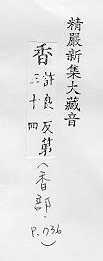 精嚴新集大藏音
香許良反第(香部.
三十四
P.736)